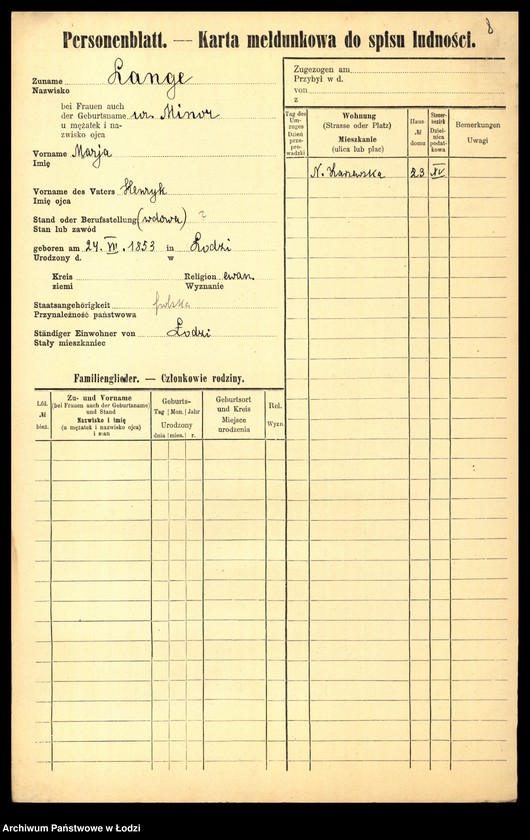 8
Personenblatt. — Karta meldunkowa do spisu ludności.
Zuname Lange
Nazwisko
bei Frauen auch
der Geburtsname ur. Minor
u mężatek i na-
zwisko ojca
Vorname Marja
Imię
Vorname des Vaters Henryk
Imię ojca
Stand oder Berufsstellung (wdowa) ?
Stan lub zawód
geboren am 24. VI. 1853 in Łodzi
Urodzony d. w
Kreis Religion ewan.
ziemi Wyznanie
Staatsangehörigkeit polska
Przynależność państwowa
Ständiger Einwohner von Łodzi
Stały mieszkaniec
Familienglieder. — Członkowie rodziny.
Lfd.
№
bież.
Zu- und Vorname
(bei Frauen auch der Geburtsname)
und Stand
Nazwisko i imię
(u mężatek i nazwisko ojca)
i stan
Geburts-
Tag Mon. Jahr
Urodzony
dnia mies. r.
Geburtsort
und Kreis
Miejsce
urodzenia
Rel.
Wyzn.
Zugezogen am
Przybył w d.
von
z
Tag des
Um-
zuges
Dzień
prze-
prowadzki
Wohnung
(Strasse oder Platz)
Mieszkanie
(ulica lub plac)
Haus-
№
domu
Steuer-
bezirk
Dziel-
nica
podat-
kowa
Bemerkungen
Uwagi
N. Zarzewska 23 XV
Archiwum Państwowe w Łodzi